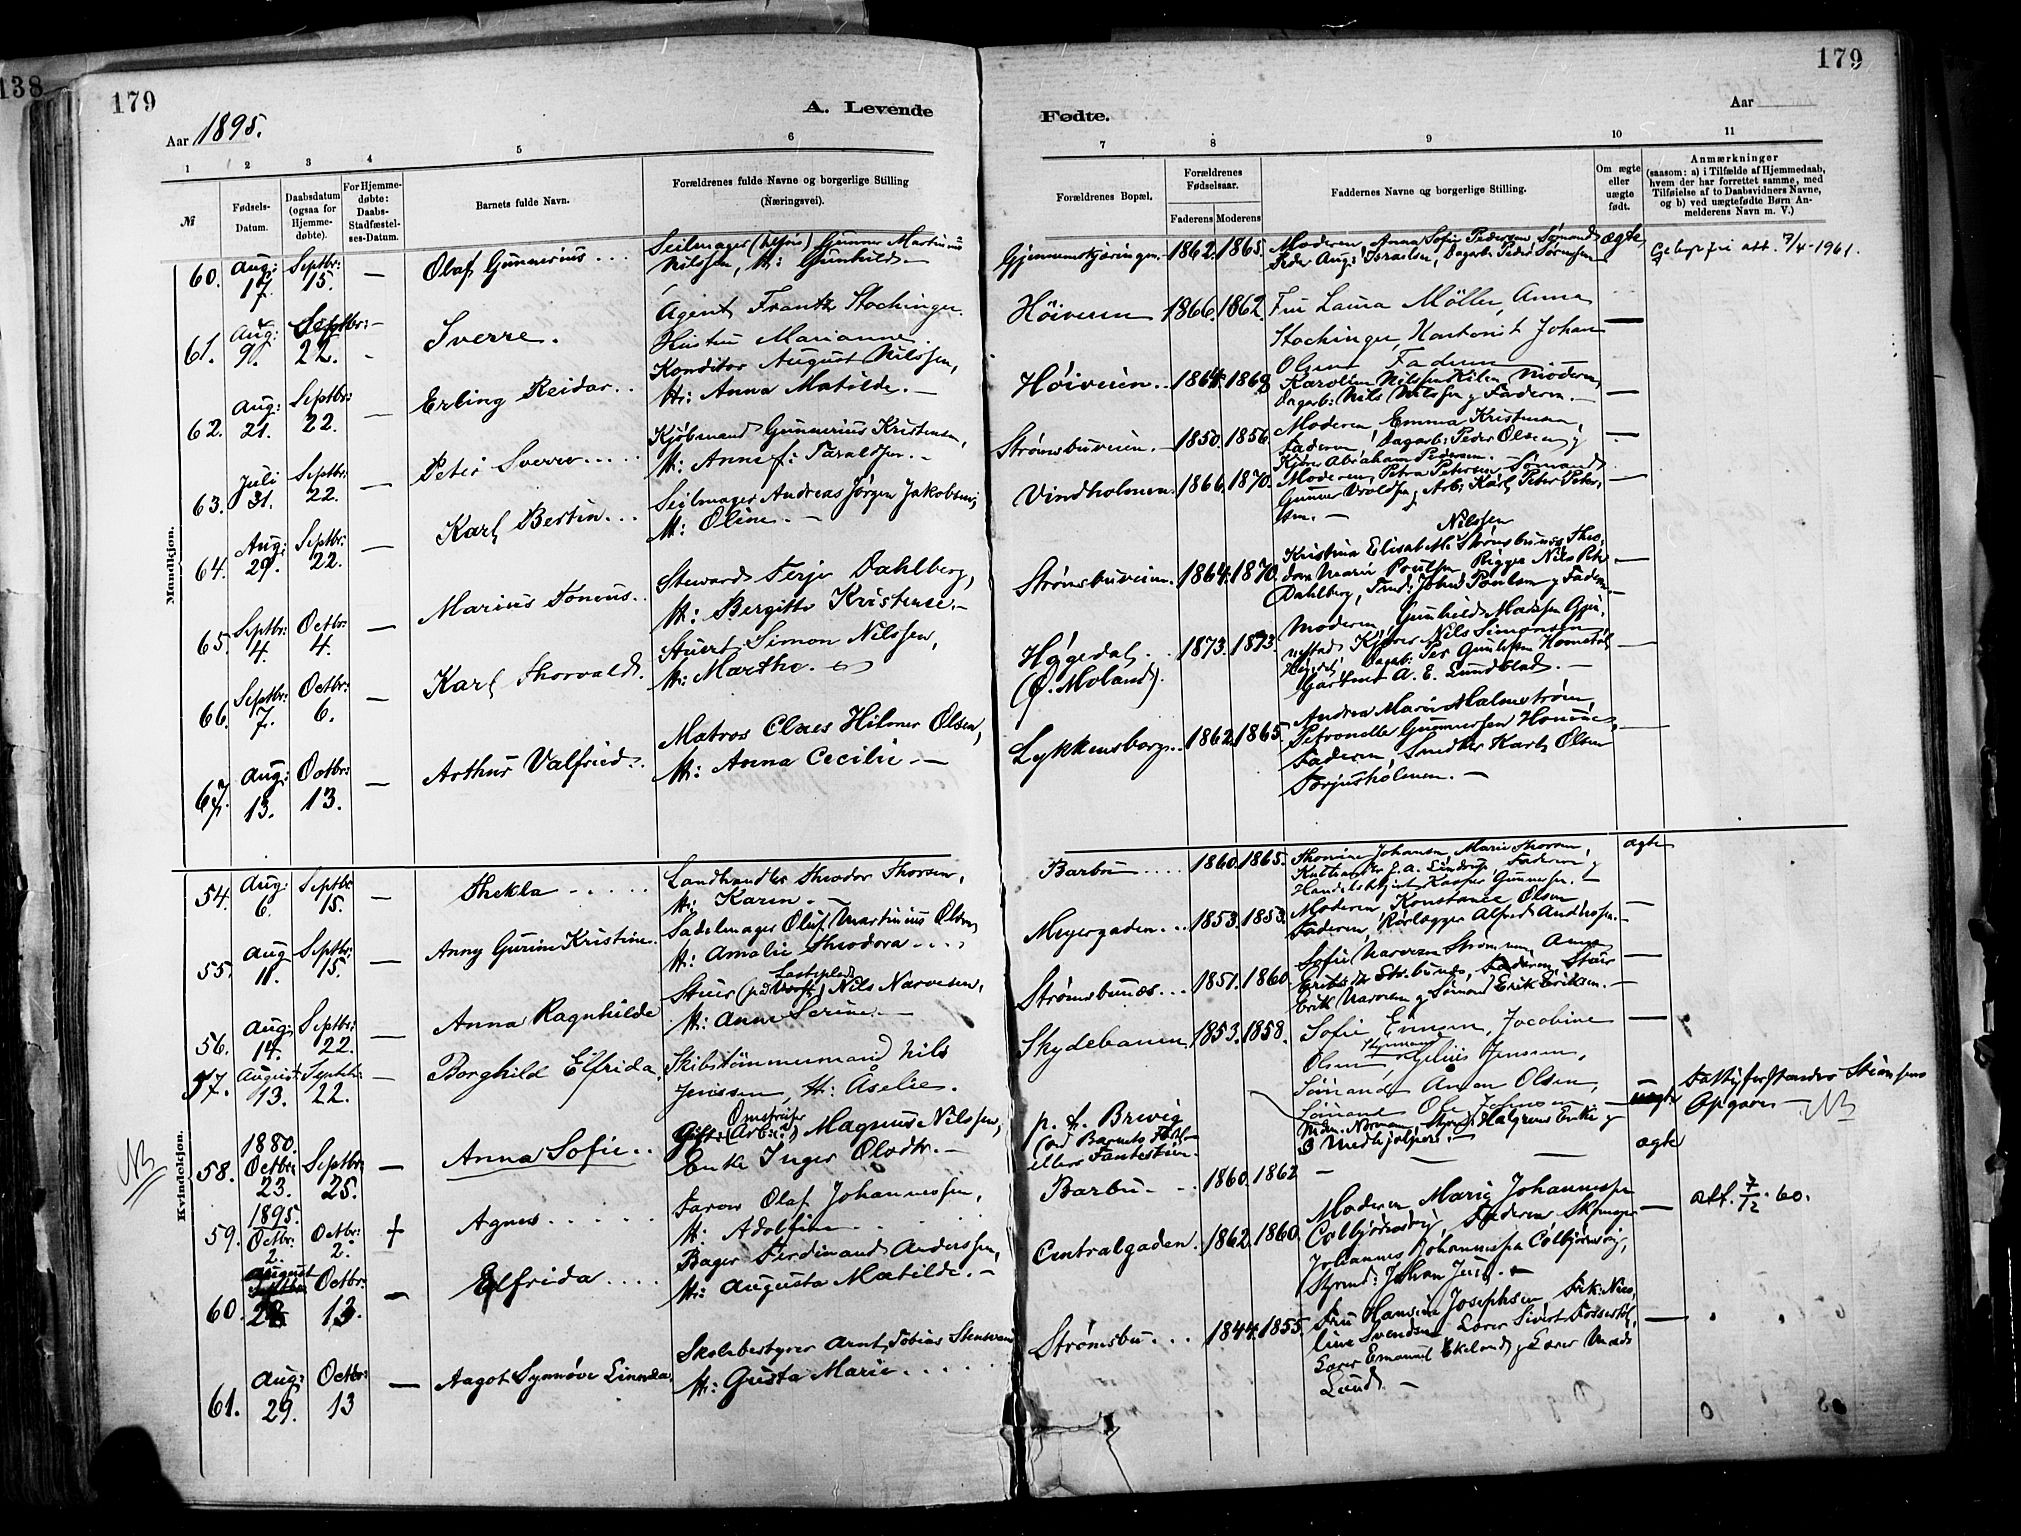 138
179
179
A. Levende
Fødte.
Aar 1895.
Aar
1 2 3 4 5 6 7 8 9 10 11
№
Fødsels-Datum.
Daabsdatum (ogsaa for Hjemme-døbte).
For Hjemme-døbte: Daabs-Stadfæstel-ses-Datum.
Barnets fulde Navn.
Forældrenes fulde Navne og borgerlige Stilling (Næringsvei).
Forældrenes Bopæl.
Forældrenes Fødselsaar.
Faderens Moderens
Faddernes Navne og borgerlige Stilling.
Om ægte eller uægte født.
Anmærkninger
(saasom: a) i Tilfælde af Hjemmedaab,
hvem der har forrettet samme, med
Tilføielse af to Daabsvidners Navne,
og b) ved uægtefødte Børn An-
melderens Navn m. V.)
Mandkjøn.
60. Aug: 17. Septbr: 15. — Olaf Gunnerius...
Seilmager Gunner Martinius
Nilssen, H: Gunhild. —
1862. 1865.
Moderen, Anna Sofie Pedersen, Sømand
Peder Aug: Israelsen, Dagarb: Peder Sørensen
ægte
att. 7/4-1961.
61. Aug: 9. Septbr: 22. — Sverre.
Agent Frantz Stachinger
Hustru Marianne.
Høiveien 1866. 1862.
Fru Laura Møller, Anna
Stachinger, Kontorist Johan
Olsen Faderen
62. Aug: 21. Septbr: 22. — Erling Reidar..
Konditor August Nilssen,
H: Anna Matilde. —
Høiveien.. 1864. 1869
Karoline Nilssen Kilen, Moderen,
Dagarb: Nils Nilssen g Faderen. —
63. Juli 31. Septbr: 22. — Peter Sverre....
Kjøbmand Gunnerius Kristensen,
H: Anne f: Taraldsen. —
Strømsbuveien. 1850. 1856.
Moderen, Emma Kristensen,
Faderen, Dagarb: Peder Olsen g
Kjører Abraham Pedersen. —
64. Aug: 29. Septbr: 22. — Karl Bertin...
Seilmager Andreas Jørgen Jakobsen,
H: Oline. —
Vindholmen. 1866. 1870.
Moderen, Petra Petersen, Sømand
Gunner g Arb: Karl Peter Peter-
sen. —
65. Septbr: 4. Octbr: 4. — Marius Tøneus..
Steward Terje Dahlberg,
H: Bergitte Kristense. —
Strømsbuveien. 1864. 1870.
Nilssen
Kristina Elisabeth Strømsbunes, Theo-
dora Marie Poulsen, Rigger Nils Petr.
Dahlberg, Tmd: Johan Poulsen g Faderen —
66. Septbr: 7. Octbr: 6. — Karl Thorvald.
Stuert Simon Nilssen,
H: Marthe.
Høgedal.. 1873. 1873.
(Ø. Moland).
Moderen, Gunhild Madsen Gjen-
nestad, Kjører Nils Simonsen
Dagarb: Per Gunlssen
Gartner A. E. Lundblad. —
67. Aug: 13. Octbr: 13. — Arthur Valfried..
Matros Claes Hilmer Olsen,
H: Anna Cecilie —
Lykkensborg.. 1862. 1865.
Andrea Marie Malmstrøm,
Petronelle Gunnersen
Faderen, Snedker Karl Olsen
Torjusholmen. —
Kvindekjøn.
54. Aug: 6. Septbr: 15. — Thekla — .....
Landhandler Theodor Thorsen,
H: Karen. —
Barbu.... 1860. 1865.
Thomine Johansen, Marie Thorsen,
J. A. Lindrup, Faderen g
Kasper Gunnersen. —
ægte
55. Aug 11. Septbr: 15. — Anny Gurine Kristine.
Sadelmager Oluf Martinius Olsen
H: Amalie Theodora —...
Meyergaden... 1853. 1853.
Moderen, Konstance Olsen
Faderen, Rørlægger Alfred Anderssen. —
56. Aug: 14. Septbr: 22. — Anna Ragnhilde
Lasteplads
Stuer (pd Værft) Nils Narvesen,
H: Anne Serine. —
Strømsbunes... 1851. 1860.
Sofie Narvesen Strømmen, Anna
Strbunes, Faderen, Stuer
Erik Narvesen g Sømand Erik Eriksen. —
57. August: 13. Septbr: 22. — Borghild Elfrida.
Skibstømmermand Nils
Jenssen, H: Aselie.
Skydebanen. 1853. 1858.
Sofie Ensen, Jacobine
Olsen, Gelius Jenssen,
Sømand Anton Olsen,
Sømand Ole
NB
58. 1880. Octbr: 23. Septbr: 25. — Anna Sofie..
Omstreifer
Gift: (Arb:) Magnus Nilssen,
Enke Inger Olsdtr. —
p. t. Brevig
(ved Barnets Fødsel
ellers Fantestien.
3 Medhjelpere. —
uægte
Fattigforstander
Opgave — NB
59. 1895. Octbr: 2. Octbr: 2. + Agnes.....
Farver Olaf Johannessen,
H: Adolfine.....
Barbu — .. 1860. 1862
— — — —
ægte
60. August 28 Octbr: 13. — Elfrida....
Bager Ferdinand Anderssen,
H: Augusta Matilde. —
Centralgaden. 1862. 1860.
Moderen, Marie Johannessen
Colbjørnsvig, Faderen, Skipper
Johannes Johannessen Colbjørnsvig,
Styrmd: Johan Juul. —
att. 7/2-60.
61. Aug: 29. Octbr: 13 — Aagot Synnøve Linnea.
Skolebestyrer Arnt Tobias Stensvand
H: Gusta Marie.....
Strømsbu... 1844. 1855.
Fru Hansine Josephsen, Frk: Nico-
line Svendsen, Lærer Sivert
Lærer Emanuel Ekeland g Lærer Mads
Lund. —